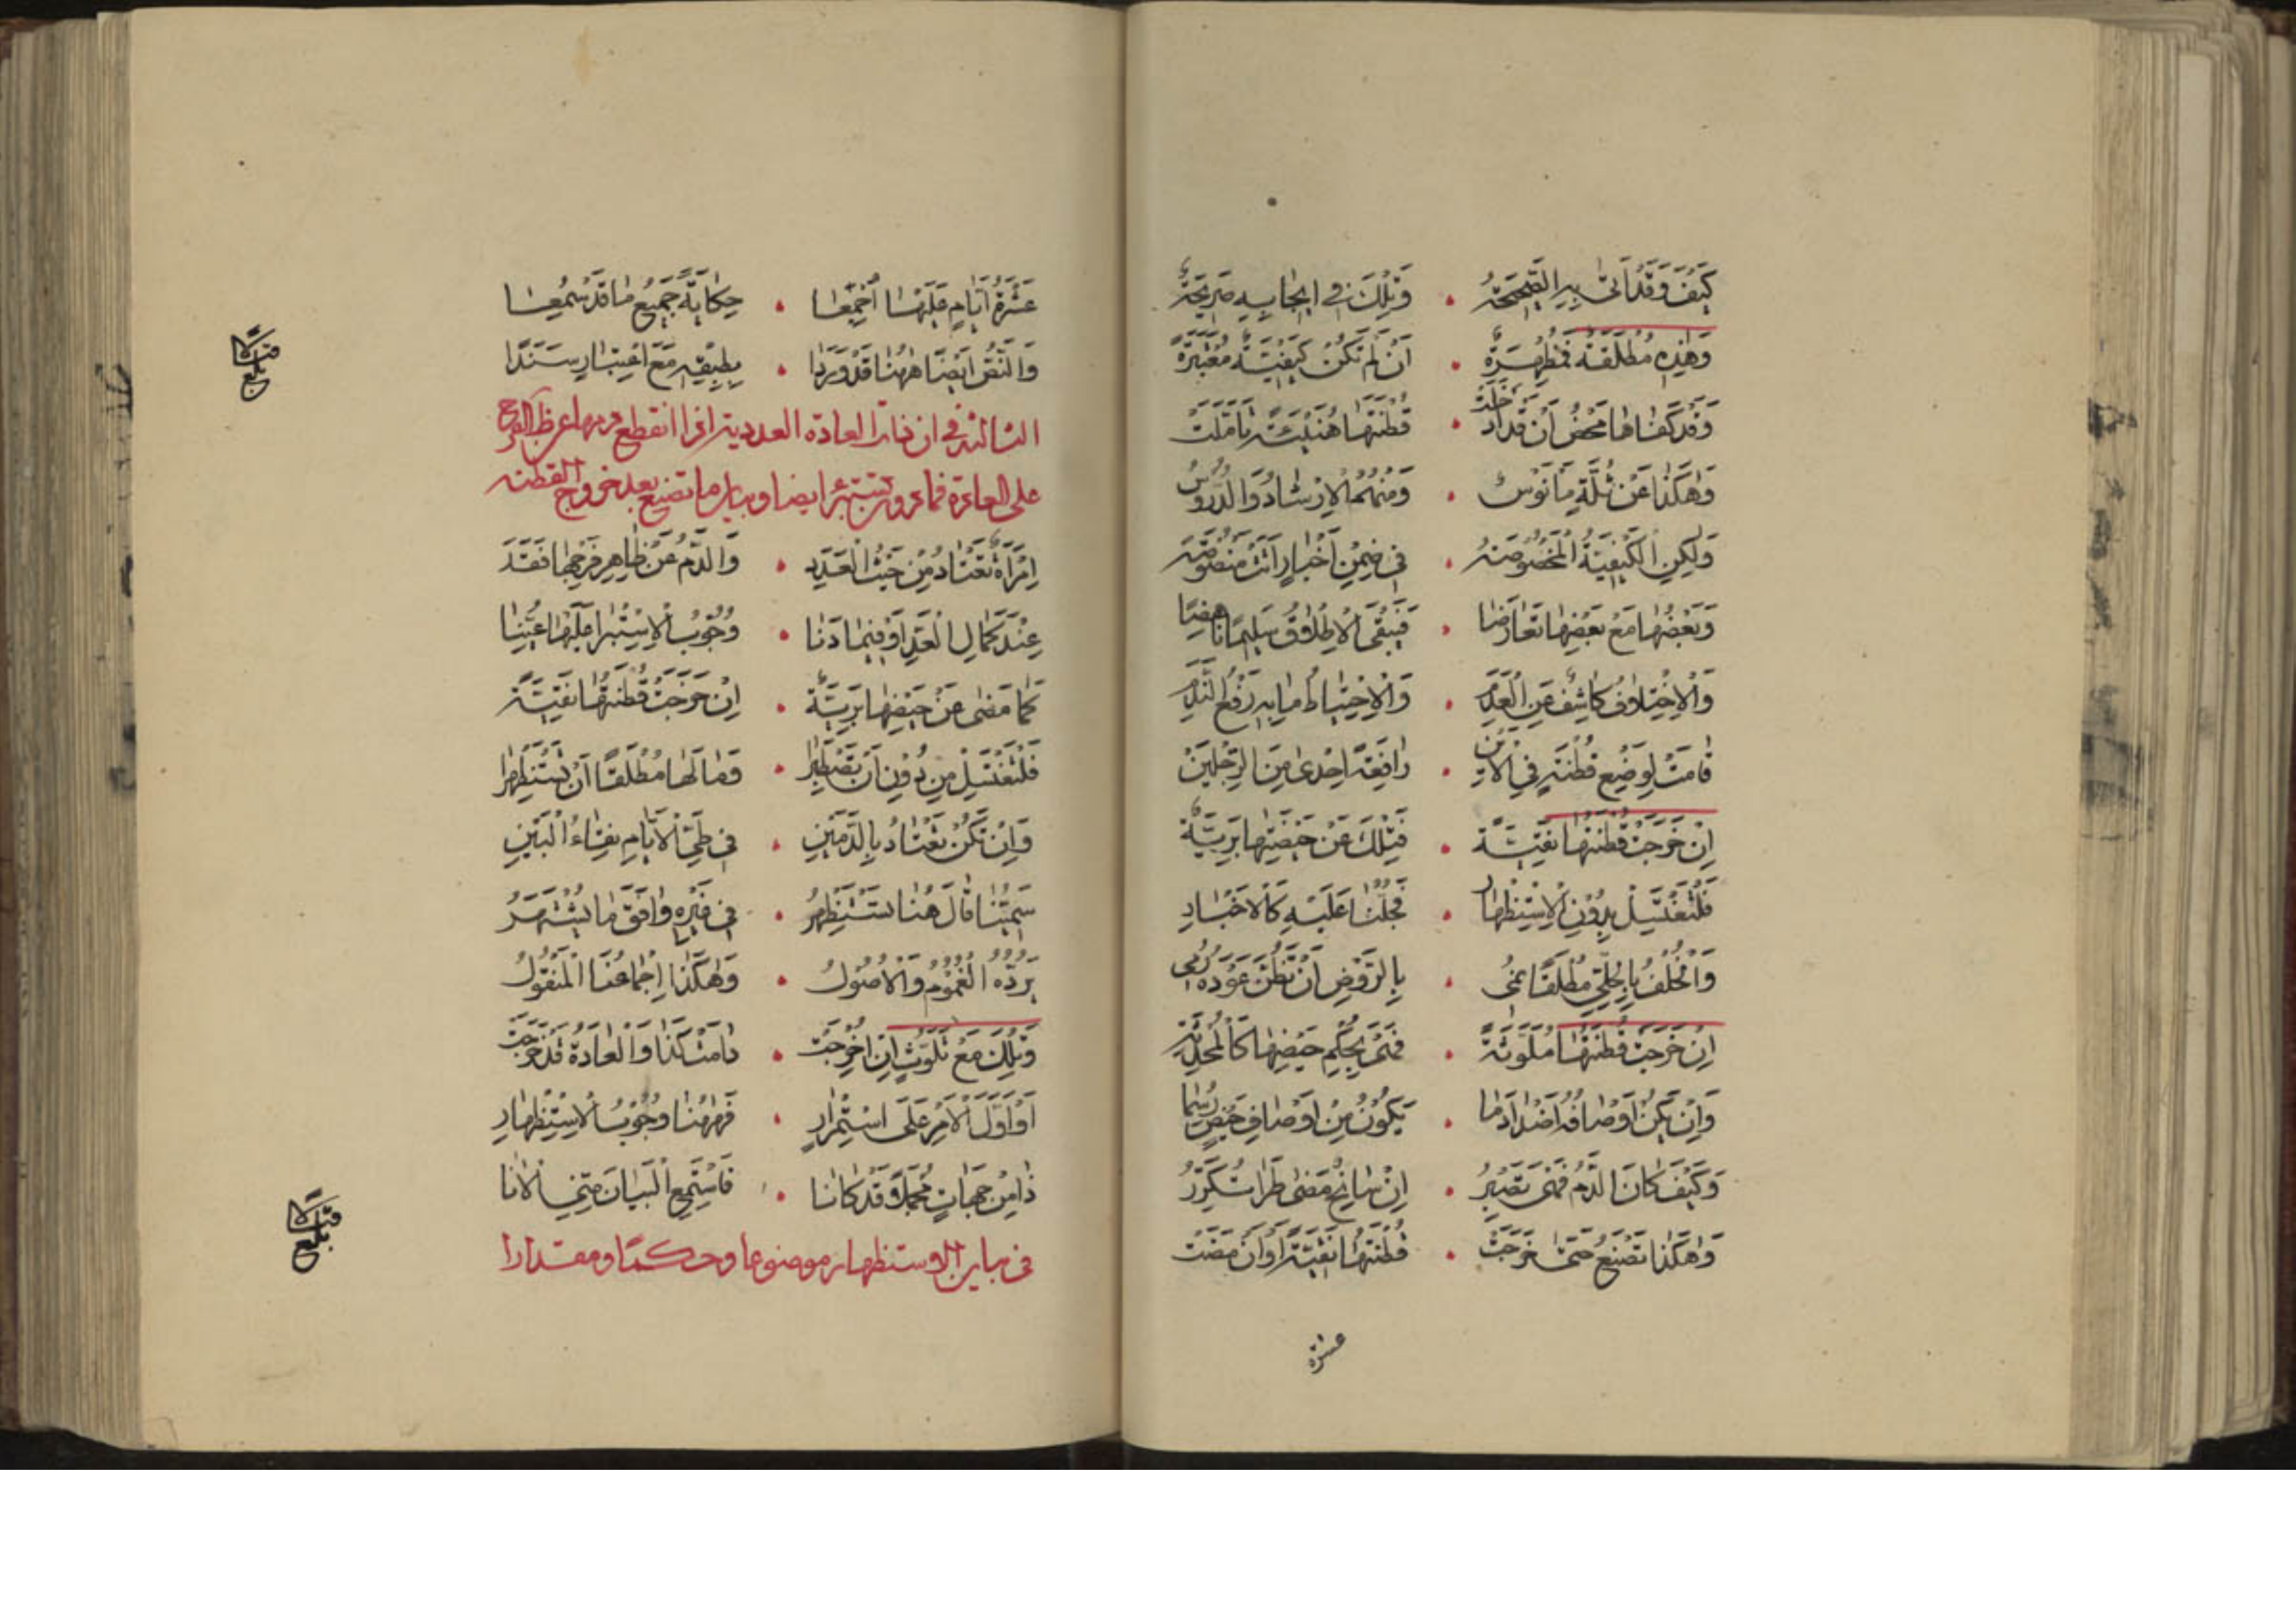 كَيْفَ وَقَدْ اَتىٰ بِهِ الصَّحِيحَةُ • وَتِلْكَ فِي اِيجَابِهِ صَرِيحَةٌ
وَهٰذِهِ مُطْلَقَةٌ مُظْهِرَةٌ • اَنْ لَمْ تَكُنْ كَيْفِيَّةٌ مُعْتَبَرَةً
وَقَدْ كَفَاهَا مَحْضُ اَنْ قَدْ اَدْخَلَتْ • قُطْنَتَهَا هُنَيْئَةً تَأَمَّلَتْ
وَهٰكَذَا عَنْ ثُلَّةٍ مَأْنُوسٌ • وَمِنْهُمُ الْاِرْشَادُ وَالدُّرُوسُ
وَلٰكِنِ الْكَيْفِيَّةُ الْمَخْصُوصَةُ • فِي ضِمْنِ اَخْبَارٍ اَتَتْ مَنْصُوصَةً
وَبَعْضُهَا مَعْ بَعْضِهَا تَعَارَضَا • فَيَبْقَى الْاِطْلَاقُ سَلِيمًا نَاهِضًا
وَالْاِخْتِلَافُ كَاشِفٌ عَنِ الْعَدَمِ • وَالْاِحْتِيَاطُ مَا بِهِ رَفْعُ النَّدَمِ
قَامَتْ لِوَضْعِ قُطْنَةٍ فِي الْاَيْنِ • رَافِعَةً اِحْدٰى مِنَ الرِّجْلَيْنِ
اِنْ خَرَجَتْ قُطْنَتُهَا نَقِيَّةً • فَتِلْكَ عَنْ حَيْضَتِهَا بَرِيَّةٌ
فَلْتَغْتَسِلْ بِدُونِ الْاِسْتِظْهَارِ • عَلَيْهِ كَالْاَخْبَارِ
وَالْخُلْفُ بِالْحِلِّيِّ مُطْلَقًا نُمِي • بِالرَّوْضِ اَنْ تَظُنَّ عَوْدَهُ رُمِي
اِنْ خَرَجَتْ قُطْنَتُهَا مُلَوَّثَةً • فَهْيَ بِحُكْمِ حَيْضِهَا كَالْمُحْدِثَةِ
وَاِنْ يَكُنْ اَوْصَافُهُ • يَكُونُ مِنْ اَوْصَافِ حَيْضٍ رُسِمَا
وَكَيْفَ كَانَ الدَّمُ فَهْيَ تَصْبِرُ • اِنْ مَضٰى طَرَا تُكَرِّرُ
وَهٰكَذَا تَصْنَعُ حَتّٰى خَرَجَتْ • قُطْنَتُهَا نَقِيَّةً اَوْ اَنْ مَضَتْ
عشرة
عَشَرَةُ اَيَّامٍ عَلَيْهَا اَجْمَعَا • حِكَايَةً جَمِيعُ مَا قَدْ سُمِعَا
وَالنَّصُّ اَيْضًا هٰهُنَا قَدْ وَرَدَا • بِطِبْقِهِ مَعَ اعْتِبَارٍ سَنَدًا
الثالثة في ان ذات العادة العددية اذا انقطع دمها عن ظاهر الفرج
على العادة فما دون تستبرئ ايضا وبيان ما تصنع بعد خروج القطنة
اِمْرَأَةٌ تَعْتَادُ مِنْ حَيْثُ الْعَدَدِ • وَالدَّمُ عَنْ ظَاهِرِ فَرْجِهَا فَقَدَ
عِنْدَ كَمَالِ الْعَدِّ اَوْ فِيمَا دَنَا • وُجُوبُ الْاِسْتِبْرَا عَلَيْهَا عُيِّنَا
كَمَا مَضٰى عَنْ حَيْضِهَا بَرِيَّةٌ • اِنْ خَرَجَتْ قُطْنَتُهَا نَقِيَّةً
فَلْتَغْتَسِلْ مِنْ دُونِ اَنْ تَصْطَبِرَا • فَمَا لَهَا مُطْلَقًا اَنْ تَسْتَظْهِرَا
وَاِنْ تَكُنْ تَعْتَادُ بِالدَّمَيْنِ • فِي طَيِّ الْاَيَّامِ نَقَاءُ الْبَيْنِ
سَمِيُّنَا قَالَ هُنَا تَسْتَظْهِرُ • فِي غَيْرِهِ وَافَقَ مَا يَشْتَهِرُ
يَرُدُّهُ الْعُمُومُ وَالْاُصُولُ • وَهٰكَذَا اِجْمَاعُنَا الْمَنْقُولُ
وَتِلْكَ مَعْ تَلَوُّثٍ اِنْ اُخْرِجَتْ • دَامَتْ كَذَا وَالْعَادَةُ قَدْ خَرَجَتْ
اَوْ اَوَّلَ الْاَمْرِ عَلَى اسْتِمْرَارٍ • فَهٰهُنَا وُجُوبُ الْاِسْتِظْهَارِ
ذَا مِنْ جِهَاتٍ مُجْمَلًا قَدْ كَانَا • فَاسْتَمِعِ الْبَيَانَ مِنِّي الْاٰنَا
في بيان الاستظهار موضوعا وحكما ومقدارا
بلغ
بلغ